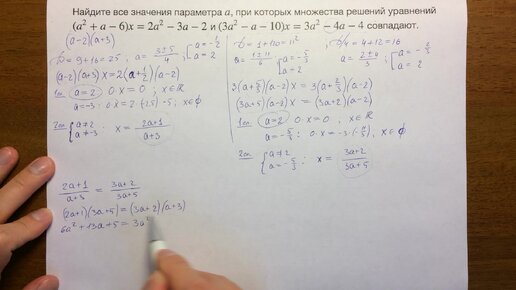 Найдите все значения параметра a, при которых множества решений уравнений
(a² + a − 6)x = 2a² − 3a − 2 и (3a² − a − 10)x = 3a² − 4a − 4 совпадают.
(a−2)(a+3)
D = 9+16 = 25, a = (3±5)/4, [a = −1/2
a = 2
(a−2)(a+3)x = 2(a+1/2)(a−2)
1сл. a=2: 0·x = 0, x∈ℝ
a=−3: 0·x = 2·(−2,5)·(−5), x∈∅
2сл. {a≠2
a≠−3: x = (2a+1)/(a+3)
D = 1+120 = 11²
a = (1±11)/6, [a = −5/3
a = 2
D/4 = 4+12 = 16
a = (2±4)/3, [a = −2/3
a = 2
3(a+5/3)(a−2)x = 3(a+2/3)(a−2)
(3a+5)(a−2)x = (3a+2)(a−2)
1сл. a=2: 0·x = 0, x∈ℝ
x∈∅
2сл. {a≠2
x = (3a+2)/(3a+5)
(2a+1)/(a+3) = (3a+2)/(3a+5)
(2a+1)(3a+5) = (3a+2)(a+3)
6a² + 13a + 5 = 3a²